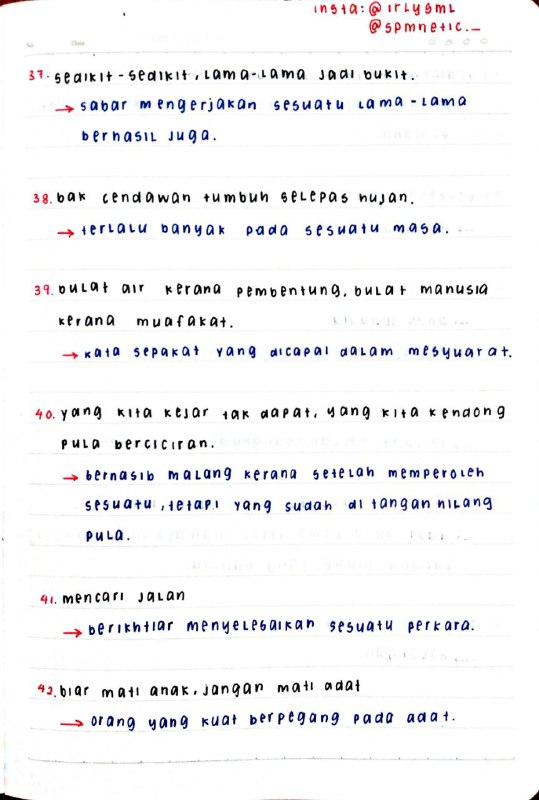 insta: @irlysml
@spmnetic._
37. sedikit-sedikit, lama-lama jadi bukit.
→ sabar mengerjakan sesuatu lama-lama
berhasil juga.
38. bak cendawan tumbuh selepas hujan.
→ terlalu banyak pada sesuatu masa.
39. bulat air kerana pembentung, bulat manusia
kerana muafakat.
→ kata sepakat yang dicapai dalam mesyuarat.
40. yang kita kejar tak dapat, yang kita kendong
pula berciciran.
→ bernasib malang kerana setelah memperoleh
sesuatu, tetapi yang sudah di tangan hilang
pula.
41. mencari jalan
→ berikhtiar menyelesaikan sesuatu perkara.
42. biar mati anak, jangan mati adat
→ orang yang kuat berpegang pada adat.